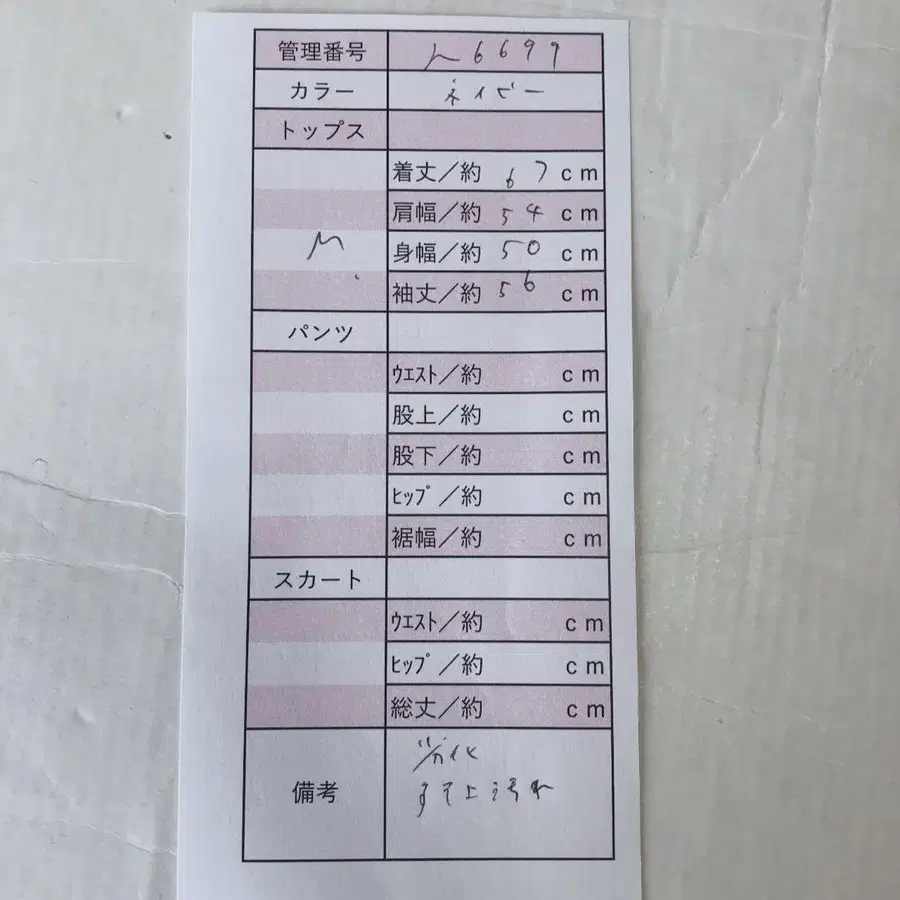 管理番号 ん6699
カラー ネイビー
トップス
着丈／約 67 cm
肩幅／約 54 cm
M 身幅／約 50 cm
袖丈／約 56 cm
パンツ
ｳｴｽﾄ／約 cm
股上／約 cm
股下／約 cm
ﾋｯﾌﾟ／約 cm
裾幅／約 cm
スカート
ｳｴｽﾄ／約 cm
ﾋｯﾌﾟ／約 cm
総丈／約 cm
劣化
備考
汚れ